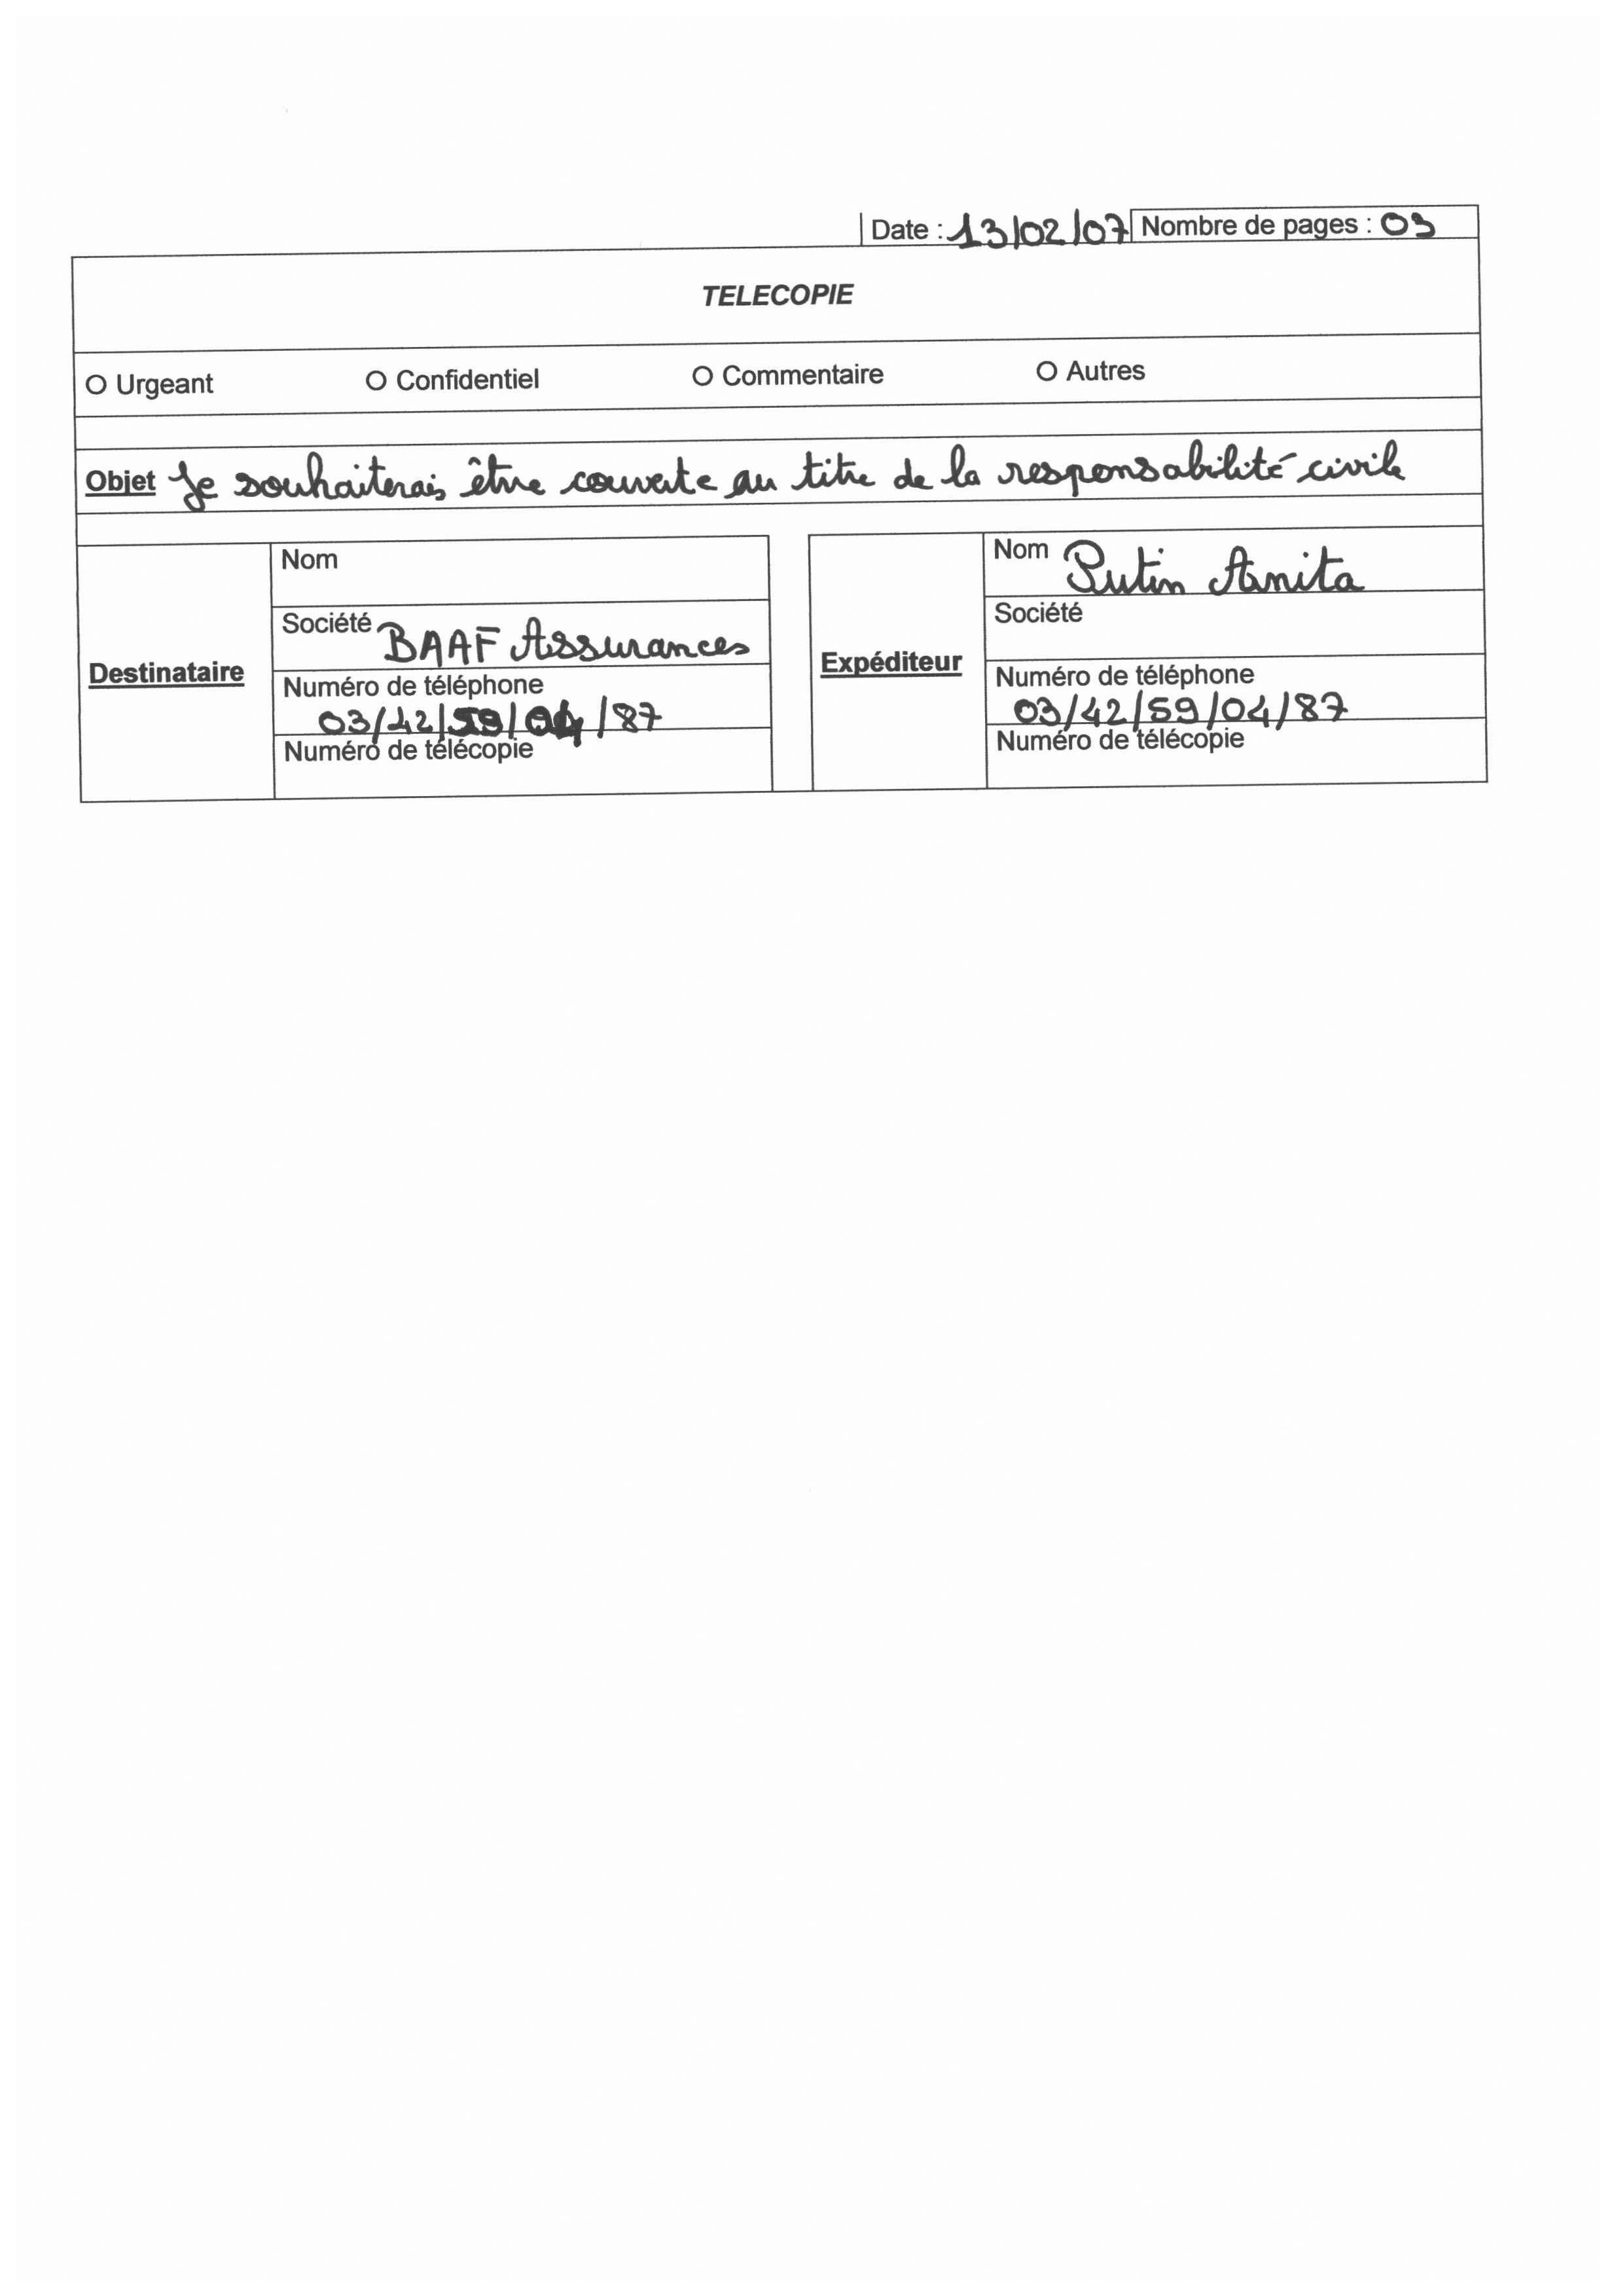 Date : 13/02/07 Nombre de pages : 03
TELECOPIE
O Urgeant O Confidentiel O Commentaire O Autres
Objet Je souhaiterais être couverte au titre de la responsabilité civile
Destinataire
Nom
Société BAAF Assurances
Numéro de téléphone
03/42/59/04/87
Numéro de télécopie
Expéditeur
Nom Putin Anita
Société
Numéro de téléphone
03/42/59/04/87
Numéro de télécopie